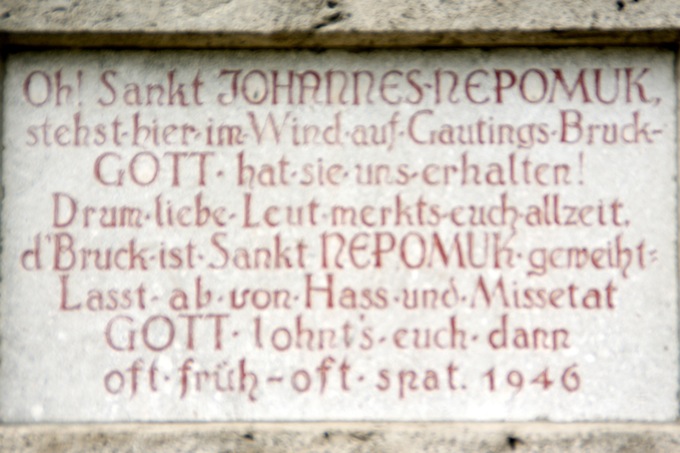 Oh! Sankt JOHANNES-NEPOMUK,
stehst·hier·im·Wind·auf·Gautings·Bruck-
GOTT·hat·sie·uns·erhalten!
Drum·liebe·Leut·merkts·euch·allzeit,
d'Bruck·ist·Sankt NEPOMUK·geweiht:
Lasst·ab·von·Hass·und·Missetat
GOTT·lohnt's·euch·dann
oft·früh-oft·spat. 1946